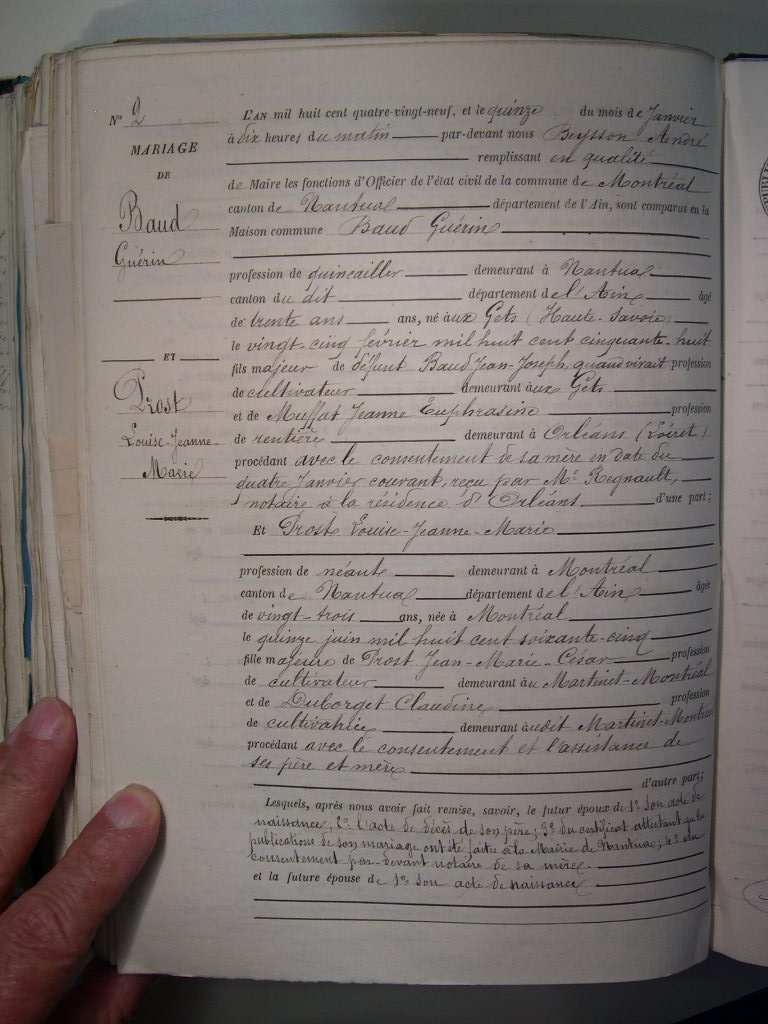 N° 2
MARIAGE
DE
Baud
Guérin
ET
Prost
Louise-Jeanne-
Marie
L'AN mil huit cent quatre-vingt-neuf, et le quinze du mois de Janvier
à dix heures du matin par-devant nous Beysson André
remplissant en qualité
de Maire les fonctions d'Officier de l'état civil de la commune de Montréal
canton de Nantua département de l'Ain, sont comparus en la
Maison commune Baud Guérin
profession de quincailler demeurant à Nantua
canton du dit département de l'Ain âgé
de trente ans ans, né aux Gets (Haute-Savoie)
le vingt-cinq février mil huit cent cinquante-huit
fils majeur de défunt Baud Jean-Joseph, quand vivait profession
de cultivateur demeurant aux Gets
et de Muffat Jeanne Euphrasine profession
de rentière demeurant à Orléans (Loiret)
procédant avec le consentement de sa mère en date du
quatre Janvier courant, reçu par Me Regnault,
notaire à la résidence d'Orléans d'une part;
Et Prost Louise-Jeanne-Marie
profession de néant demeurant à Montréal
canton de Nantua département de l'Ain âgée
de vingt-trois ans, née à Montréal
le quinze juin mil huit cent soixante-cinq
fille majeure de Prost Jean-Marie-César profession
de cultivateur demeurant au Martinet-Montréal
et de Duborget Claudine profession
de cultivatrice demeurant audit Martinet-Montréal
procédant avec le consentement et l'assistance de
ses père et mère
d'autre part;
Lesquels, après nous avoir fait remise, savoir, le futur époux de 1° son acte de
naissance; 2° l'acte de décès de son père; 3° du certificat attestant que les
publications de son mariage ont été faites à la Mairie de Nantua; 4° du
consentement par-devant notaire de sa mère
et la future épouse de 1° son acte de naissance